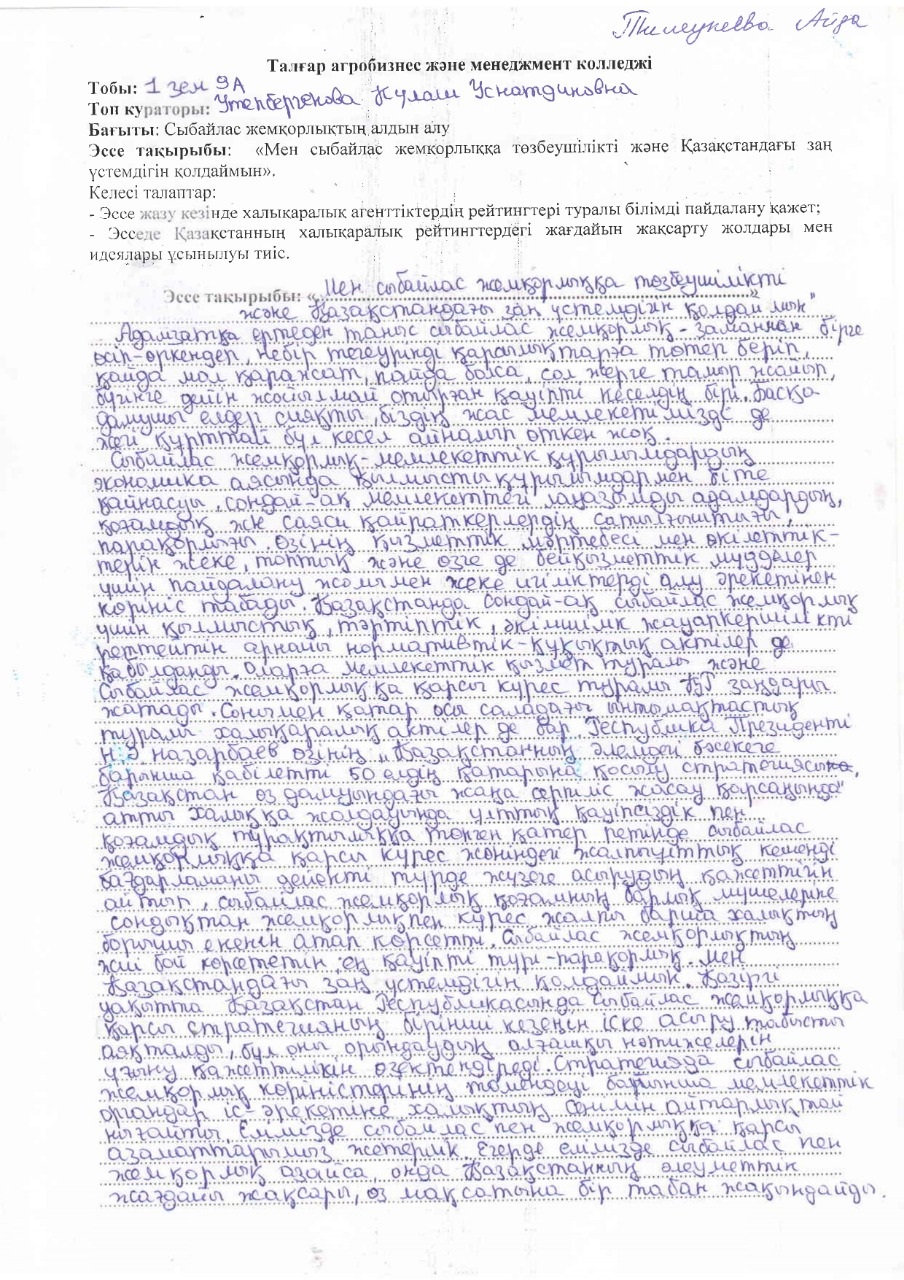 Тилеукеева Айда
Талғар агробизнес және менеджмент колледжі
Тобы: 1 зем 9А
Топ кураторы: Утепбергенова Кулаш
Бағыты: Сыбайлас жемқорлықтың алдын алу
Эссе тақырыбы: «Мен сыбайлас жемқорлыққа төзбеушілікті және Қазақстандағы заң
үстемдігін қолдаймын».
Келесі талаптар:
- Эссе жазу кезінде халықаралық агенттіктердің рейтингтері туралы білімді пайдалану қажет;
- Эсседе Қазақстанның халықаралық рейтингтердегі жағдайын жақсарту жолдары мен
идеялары ұсынылуы тиіс.
Эссе тақырыбы: « Мен сыбайлас жемқорлыққа төзбеушілікті
және Қазақстандағы заң үстемдігін қолдаймын"
Адамзатқа ертеден таныс сыбайлас жемқорлық - заманнан бірге
өсіп-өркендеп, небір тегеурінді қарсылықтарға төтеп беріп,
қайда мол қаражат, пайда болса, сол жерге тамыр жайып,
бүгінге дейін жойылмай отырған қауіпті кеселдің бірі. Басқа
дамушы елдер сияқты, біздің жас мемлекетімізде де
жегі құрттай бұл кесел айналып өткен жоқ.
Сыбайлас жемқорлық - мемлекеттік құрылымдардың
экономика аясында қылмыстық құрылымдармен біте
қайнасуы, сондай-ақ мемлекеттегі лауазымды адамдардың,
қоғамдық және саяси қайраткерлердің сатылғыштығы,
парақорлығы, өзінің қызметтік мәртебесі мен өкілеттік-
терін жеке, топтық және өзге де бейқызметтік мүдделер
үшін пайдалану жолымен жеке игіліктерді алу әрекетінен
көрініс табады. Қазақстанда сондай-ақ сыбайлас жемқорлық
үшін қылмыстық, тәртіптік, әкімшілік жауапкершілікті
реттейтін арнайы нормативтік-құқықтық актілер де
қабылданды. Оларға мемлекеттік қызмет туралы және
Сыбайлас жемқорлыққа қарсы күрес туралы ҚР заңдары
жатады. Сонымен қатар осы саладағы ынтымақтастық
туралы халықаралық актілер де бар. Республика Президенті
Н.Ә назарбаев өзінің „Қазақстанның әлемдегі бәсекеге
барынша қабілетті 50 елдің қатарына қосылу стратегиясы,
Қазақстан өз дамуындағы жаңа серпіліс жасау қарсаңында"
атты Халыққа жолдауында ұлттық қауіпсіздік пен
қоғамдық тұрақтылыққа төнген қатер ретінде сыбайлас
жемқорлыққа қарсы күрес жөніндегі жалпыұлттық кешенді
бағдарламаны дәйекті түрде жүзеге асырудың қажеттігін
айтып, сыбайлас жемқорлық қоғамның барлық мүшелеріне
сондықтан жемқорлықпен күрес жалпы барша халықтың
борышы екенін атап көрсетті. Сыбайлас жемқорлықтың
жиі бой көрсететін ең қауіпті түрі-парақорлық. Мен
Қазақстандағы заң үстемдігін қолдаймын. Қазіргі
уақытта Қазақстан Республикасында сыбайлас жемқорлыққа
қарсы стратегияның бірінші кезеңін іске асыру табысты
аяқталды, бұл оны орындаудың алғашқы нәтижелерін
ұғыну қажеттілігін өзектендіреді. Стратегияда сыбайлас
жемқорлық көріністерінің төмендеуі барынша мемлекеттік
органдар іс-әрекетіне халықтың сенімін айтарлықтай
нығайтты. Елімізде сыбайлас пен жемқорлыққа қарсы
азаматтарымыз жетерлік. Егерде елімізде сыбайлас пен
жемқорлық азайса, онда Қазақстанның әлеуметтік
жағдайы жақсары, өз мақсатына бір табан жақындайды.